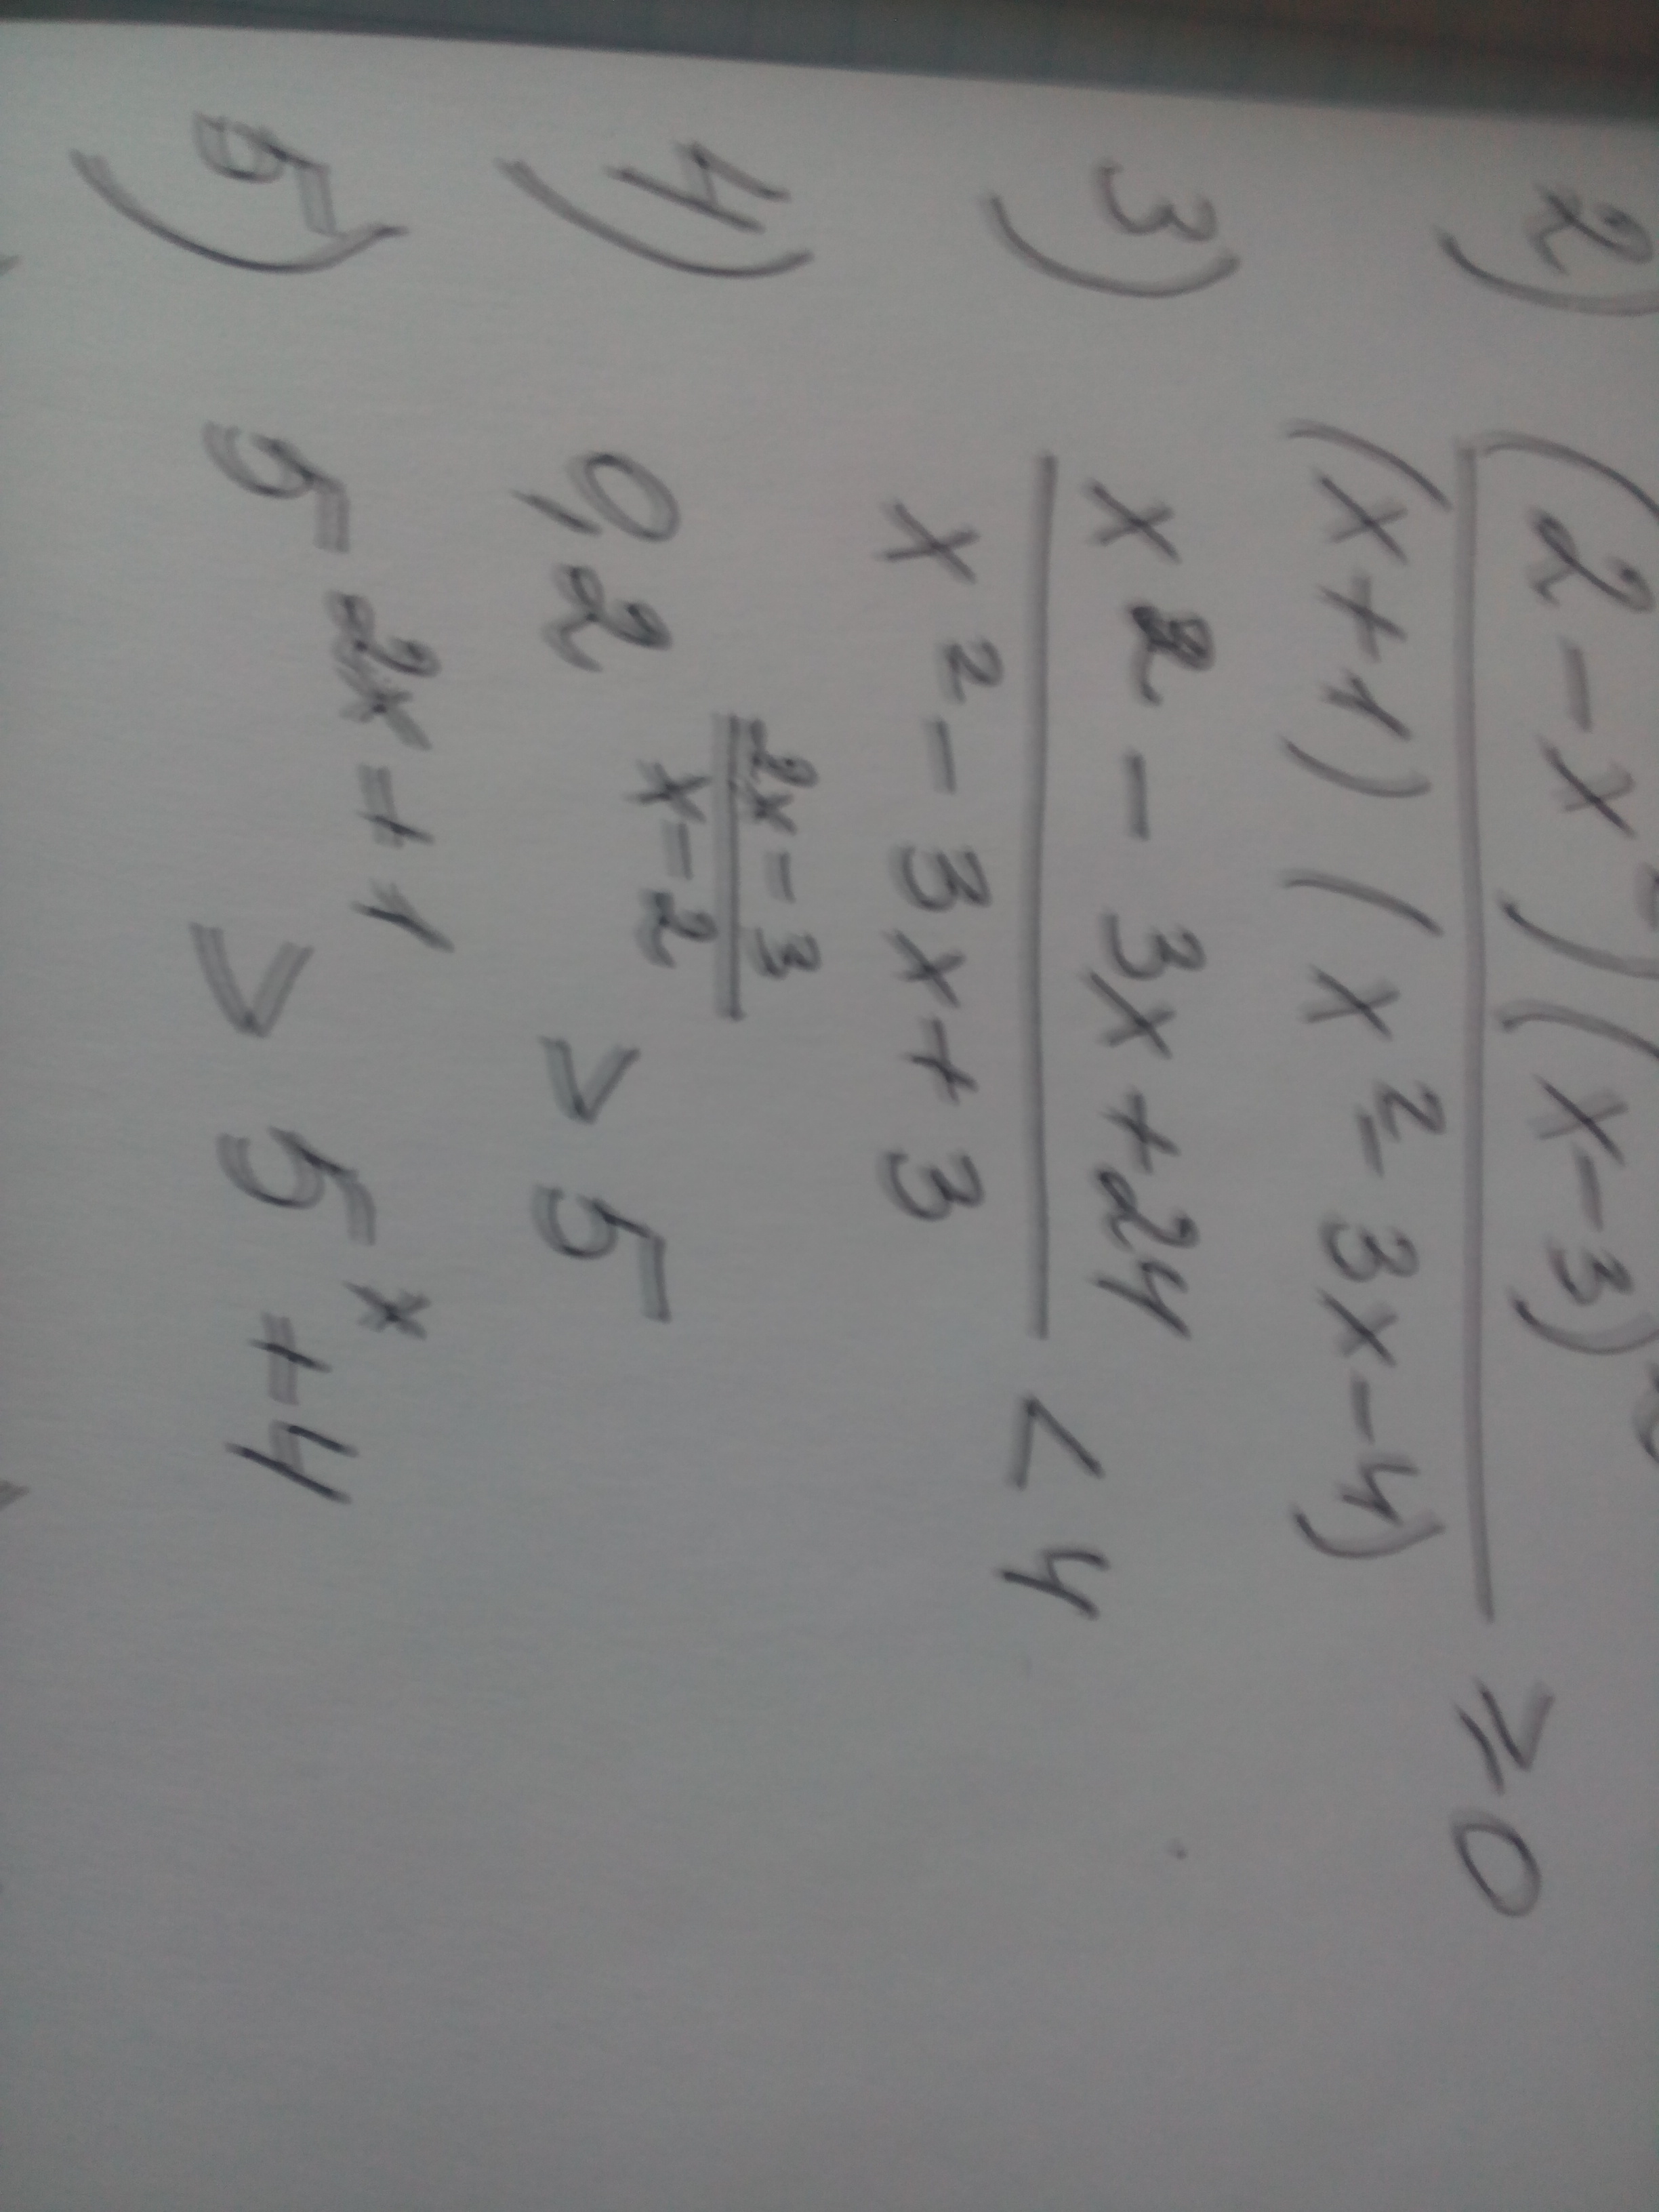 2) (2-x²)(x-3)
(x+1)(x²-3x-4) ≥0
3) x²-3x+24
x²-3x+3 <4
4) 0,2^((2x-3)/(x-2)) > 5
5) 5^(2x+1) > 5^x +4